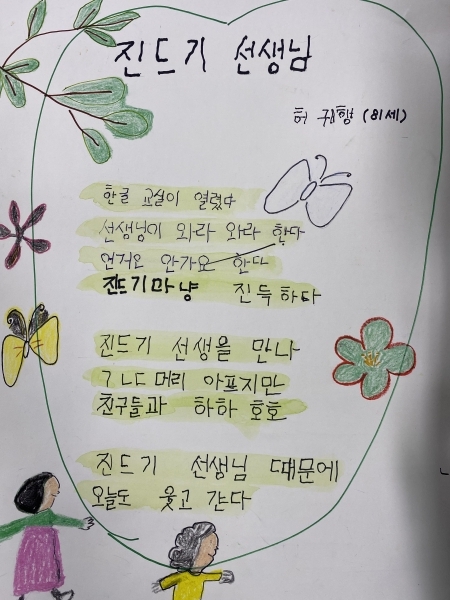 진드기 선생님
허 궤행 (81세)
한글 교실이 열렸다
선생님이 와라 와라 한다
안가요 한다
진드기마냥 진득하다
진드기 선생을 만나
ㄱㄴㄷ 머리 아프지만
친구들과 하하 호호
진드기 선생님 때문에
오늘도 웃고 간다